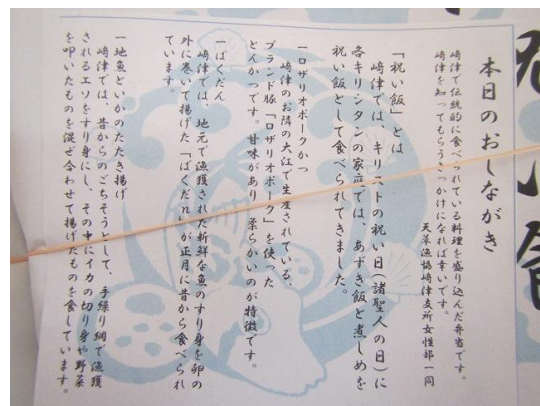 本日のおしながき
﨑津で伝統的に食べられている料理を盛り込んだ弁当です。
﨑津を知ってもらうきっかけになれば幸いです。
天草漁協﨑津支所女性部一同
「祝い飯」とは
﨑津では、キリストの祝い日(諸聖人の日)に
各キリシタンの家庭では、あずき飯と煮しめを
祝い飯として食べられてきました。
一ロザリオポークかつ
﨑津のお隣の大江で生産されている、
ブランド豚「ロザリオポーク」を使った
とんかつです。甘味があり、柔らかいのが特徴です。
一ばくだん
﨑津では、地元で漁獲された新鮮な魚のすり身を卵の
外に巻いて揚げた「ばくだん」が正月に昔から食べられ
ています。
一地魚といかのたたき揚げ
﨑津では、昔からのごちそうとして、手繰り網で漁獲
されるエソをすり身にし、その中にイカの切り身や野菜
を叩いたものを混ぜ合わせて揚げたものを食しています。